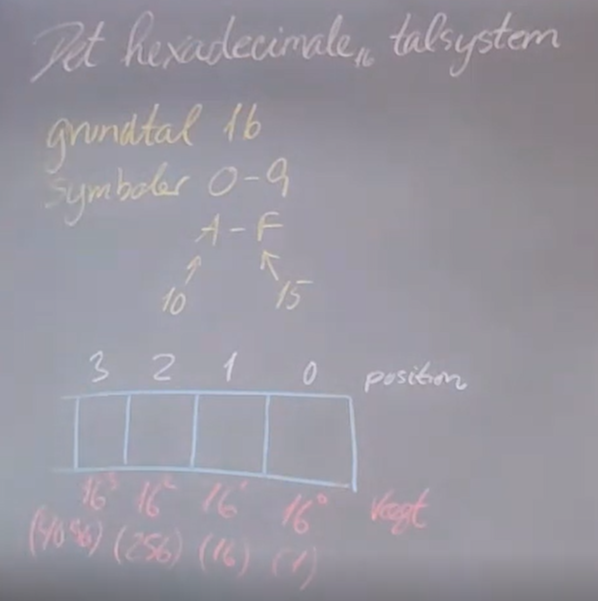 Det hexadecimale₁₆ talsystem
grundtal 16
symboler 0-9
A-F
10 15
3 2 1 0 position
16³ 16² 16¹ 16⁰ Vægt
(4096) (256) (16) (1)